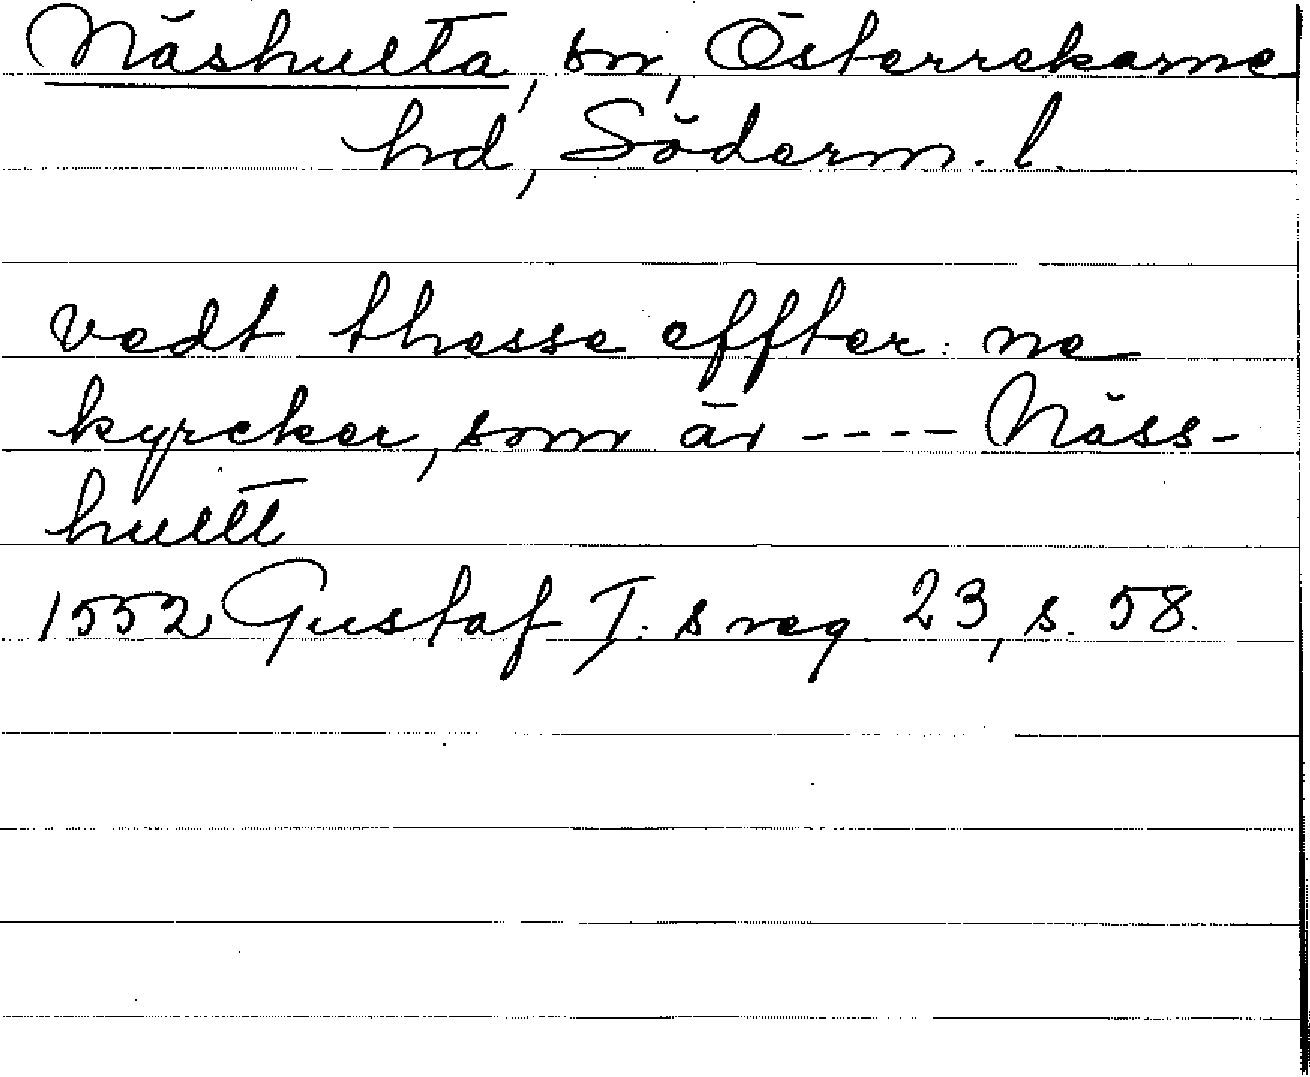 Näshulta, sn, Österrekarne
hd, Söderm. l.
vedt thesse effter: ne
kyrcker, som är ---- Näss-
hultt
1552 Gustaf I:s reg. 23, s. 58.